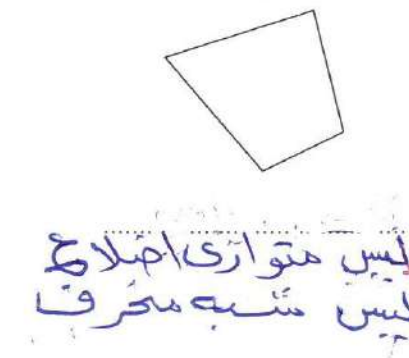 ليس متوازى اضلاع
ليس شبه منحرف